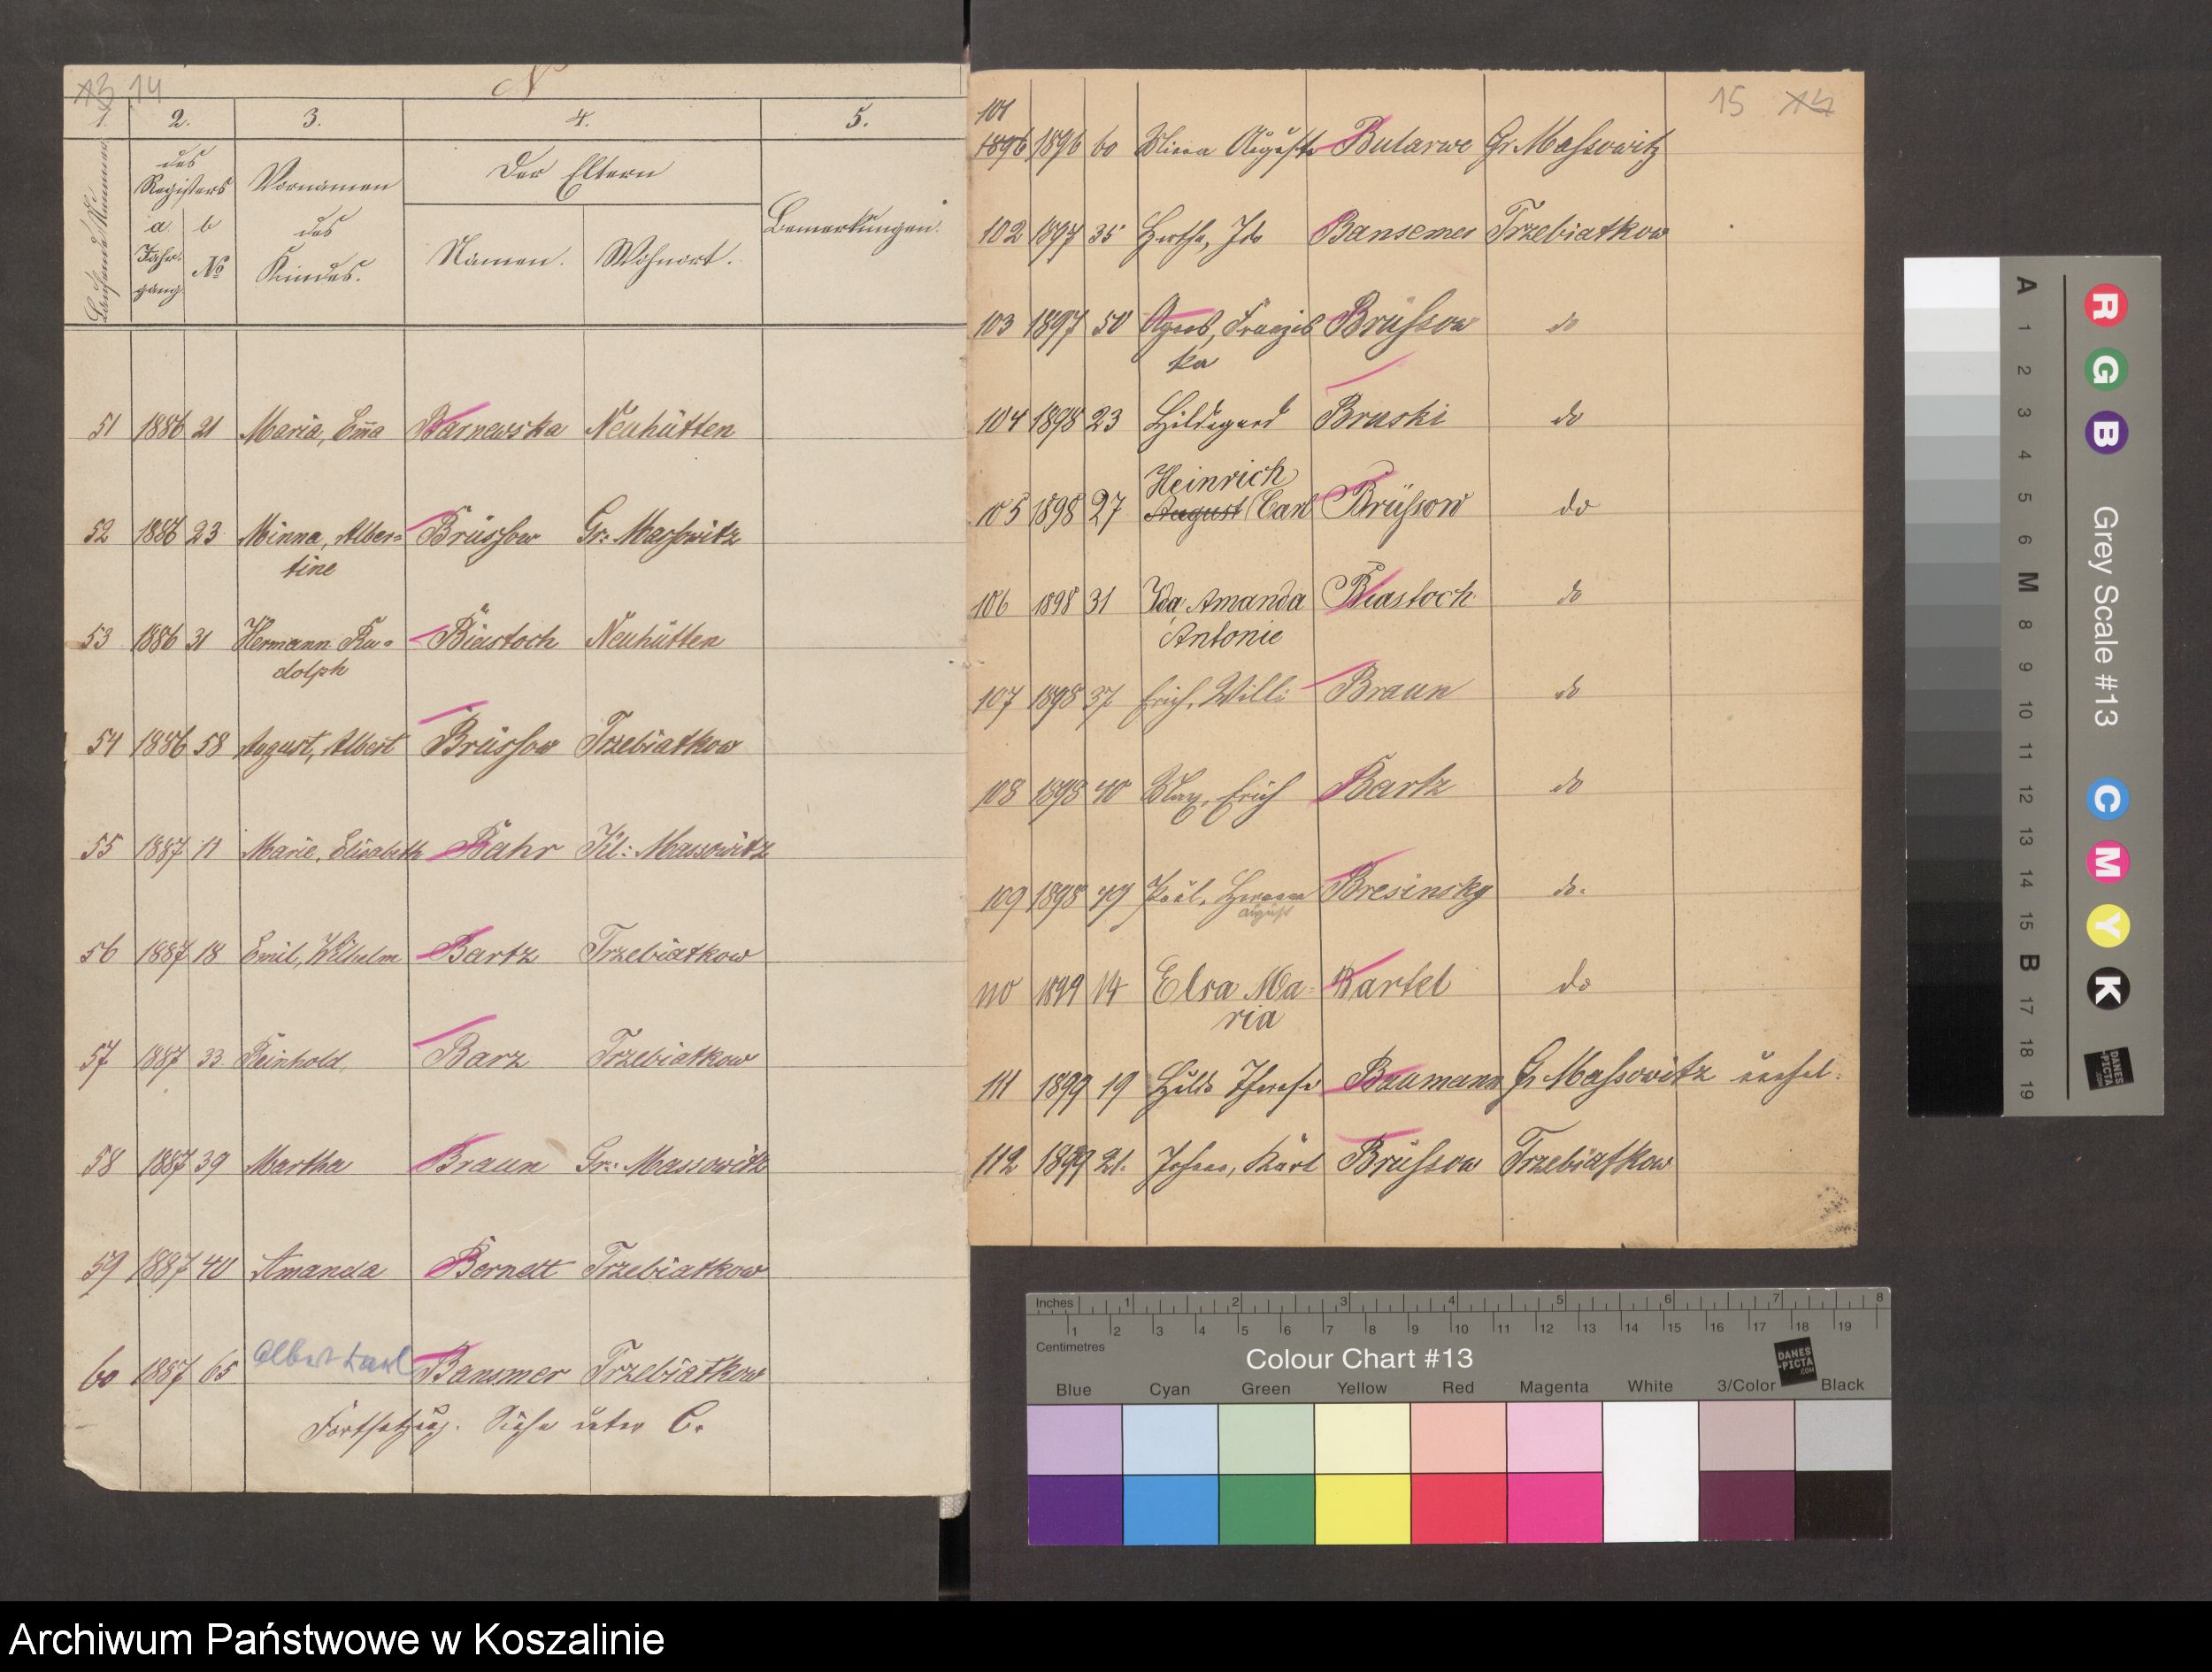 13 14
1. 2. 3. 4. 5.
Laufende Nummer
des Registers
a. Jahrgang
b No
Vornamen des Kindes.
Der Eltern
Namen. Wohnort.
Bemerkungen.
51 1886 21 Maria, Em̄a Barnewska Neuhütten
52 1886 23 Minna, Alber=
tine Brüssow Gr: Massowitz
53 1886 31 Hermann Ru=
dolph Biastoch Neuhütten
54 1886 58 August, Albert Brüssow Trzebiatkow
55 1887 11 Marie, Elisabeth Bahr Kl: Massowitz
56 1887 18 Emil, Wilhelm Bartz Trzebiatkow
57 1887 33 Reinhold, Barz Trzebiatkow
58 1887 39 Martha Braun Gr: Massowitz
59 1887 40 Amanda Bernett Trzebiatkow
60 1887 65 Albert Karl Bansmer Trzebiatkow
Fortsetzung. Siehe unter C.
15 14
101
1896 1896 60 Auguste Butarwe Gr. Massowitz
102 1897 35 Hertha, Ida Bansemer Trzebiatkow
103 1897 50 Agnes, Franzis
ka Brüssow do
104 1898 23 Hildegard Bruski do
Heinrich
105 1898 27 August Carl Brüssow do
106 1898 31 Ida Amanda Biastoch do
Antonie
107 1898 37 Erich, Willi Braun do
108 1898 40 Max, Erich Bartz do
109 1898 49 Paul, Hermann Bresinsky do.
August
110 1899 14 Elsa Ma= Bartel do
ria
111 1899 19 Hilda Therese Baumann Gr Massowitz unehel.
112 1899 21. Johann, Karl Brüssow Trzebiatkow
A 1 2 3 4 5 6 M 8 9 10 11 12 13 14 15 B 17 18 19
R G B Grey Scale #13 C M Y K
DANES
-PICTA
.COM
Inches 1 2 3 4 5 6 7 8
1 2 3 4 5 6 7 8 9 10 11 12 13 14 15 16 17 18 19
Centimetres
Colour Chart #13
DANES
-PICTA
.COM
Blue Cyan Green Yellow Red Magenta White 3/Color Black
Archiwum Państwowe w Koszalinie